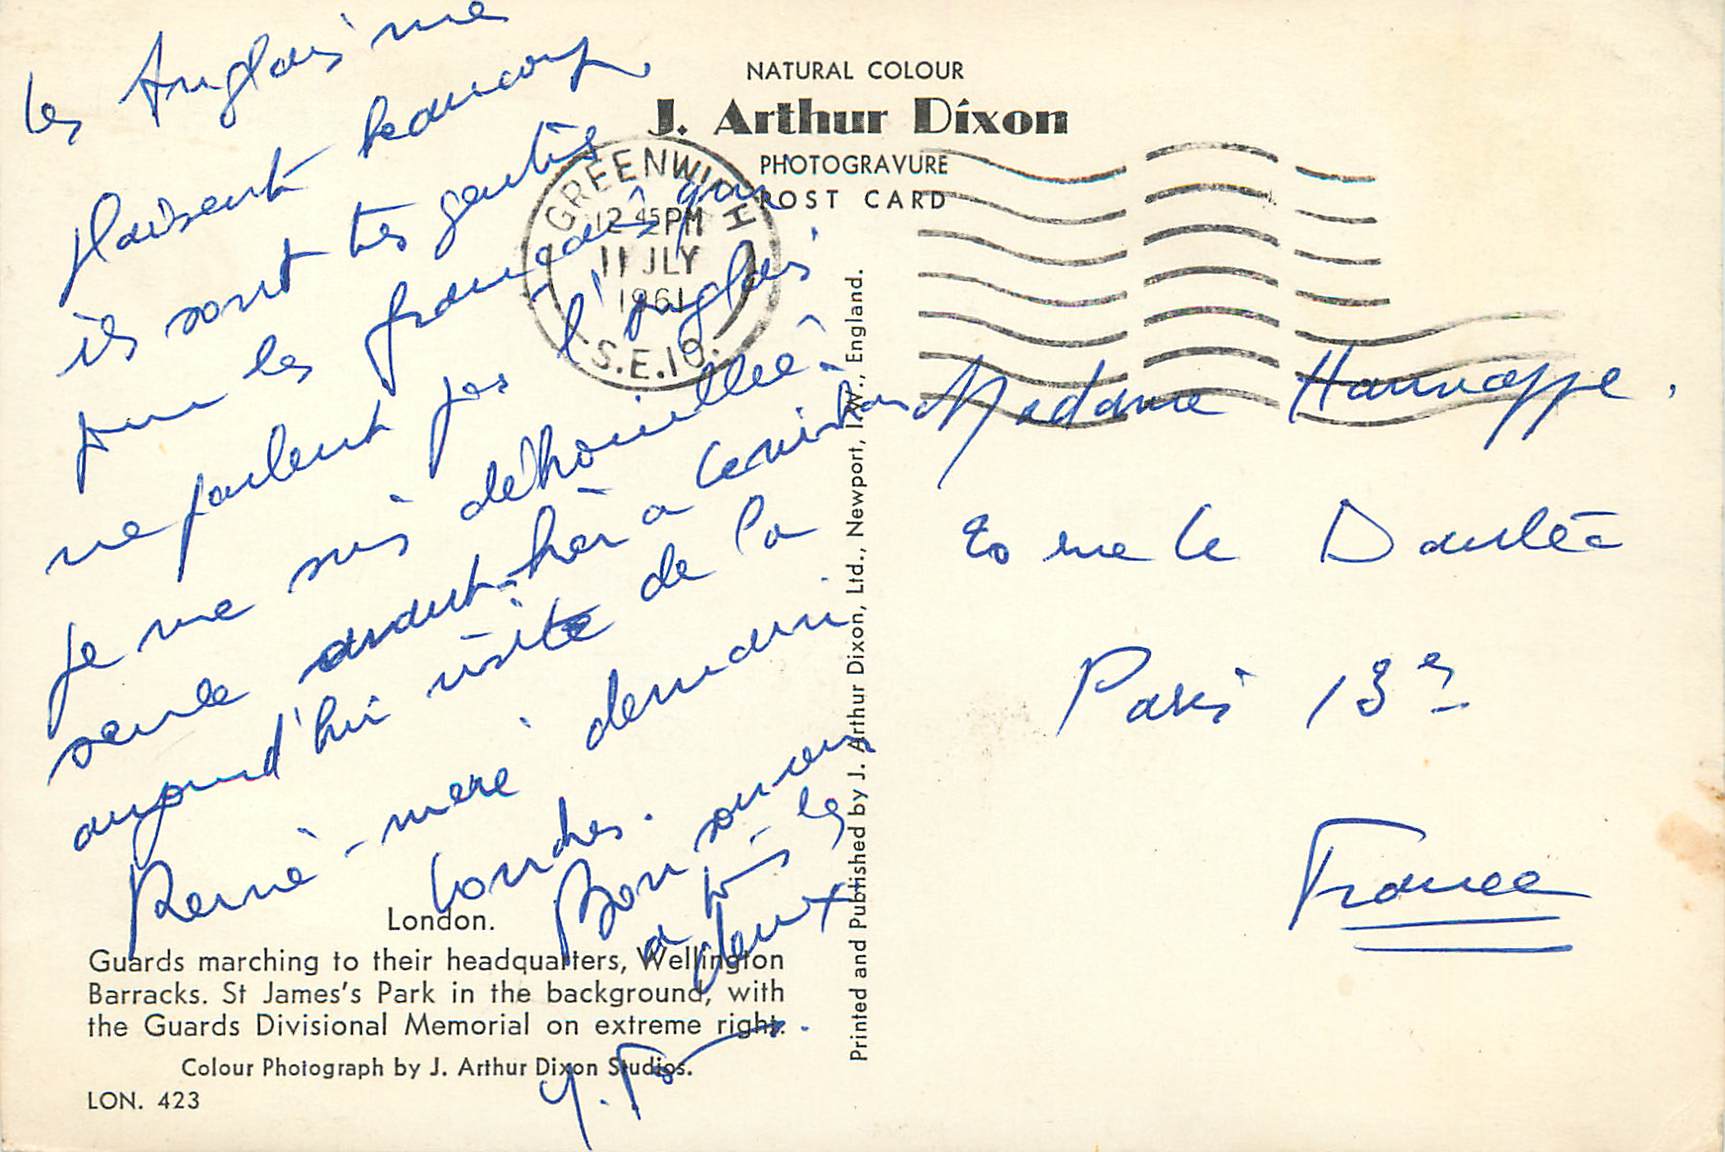 les Anglais me
plaisent beaucoup,
ils sont très gentils
pour les français qui
ne parlent pas l'anglais
Je me suis débrouillée
seule avant-hier à
aujourd'hui visite de la
Reine-mère demain
Londres.
Bon souvenir
à tous les
deux
Y.
London.
Guards marching to their headquarters, Wellington
Barracks. St James's Park in the background, with
the Guards Divisional Memorial on extreme right.
Colour Photograph by J. Arthur Dixon Studios.
LON. 423
NATURAL COLOUR
J. Arthur Dixon
PHOTOGRAVURE
POST CARD
GREENWICH
12 45 PM
11 JLY
1961
S.E.10.
Printed and Published by J. Arthur Dixon, Ltd., Newport, I.W., England.
Madame Hannappe.
20 rue le Dantec
Paris 13e
France